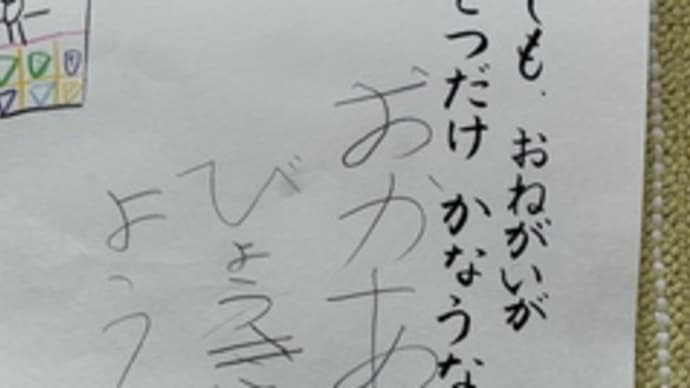 も、おねがいが
つだけ かなうな
おかあ
びょうき
よう